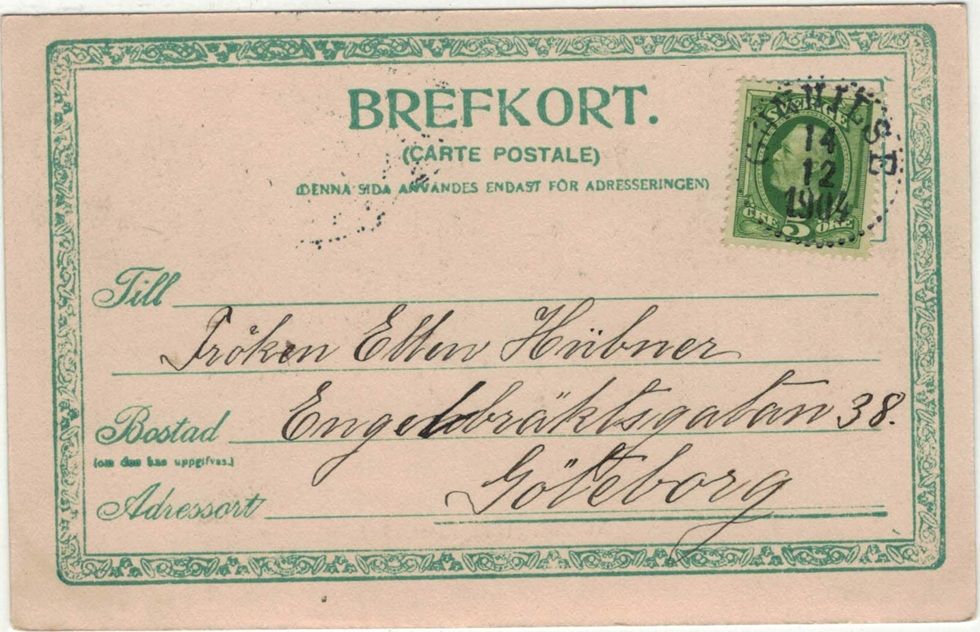 BREFKORT.
(CARTE POSTALE)
(DENNA SIDA ANVÄNDES ENDAST FÖR ADRESSERINGEN)
SVERIGE
14
12
1904
ÖRE 5 ÖRE
Till
Fröken Ellen Hübner
Bostad Engelbräktsgatan 38.
(om den kan uppgifvas.)
Adressort Göteborg